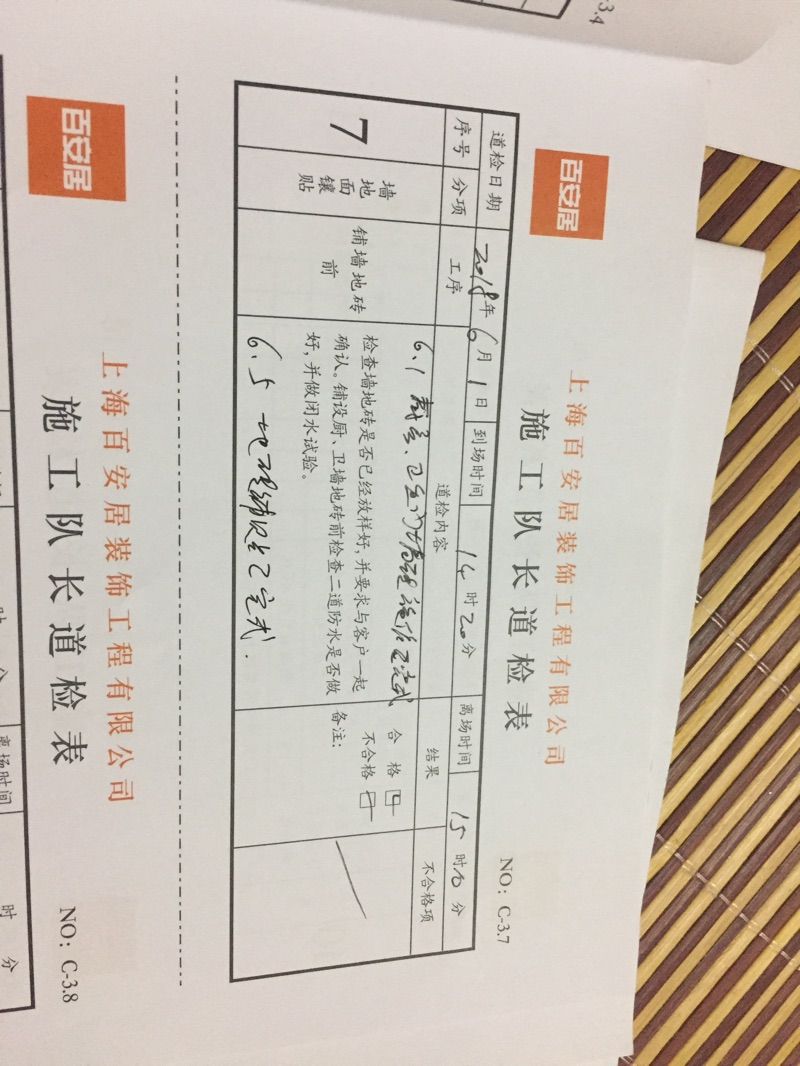 3.4
百安居
上海百安居装饰工程有限公司
施工队长道检表
NO: C-3.7
道检日期 2018年6月1日 到场时间 14时20分 离场时间 15时0分
序号 分项 工序 道检内容 结果 不合格项
7
墙地面镶贴
铺墙地砖前
6.1
检查墙地砖是否已经放样好,并要求与客户一起
确认。铺设厨、卫墙地砖前检查二道防水是否做
好,并做闭水试验。
6.5
合格
不合格
备注:
百安居
上海百安居装饰工程有限公司
施工队长道检表
NO: C-3.8
离场时间 时 分